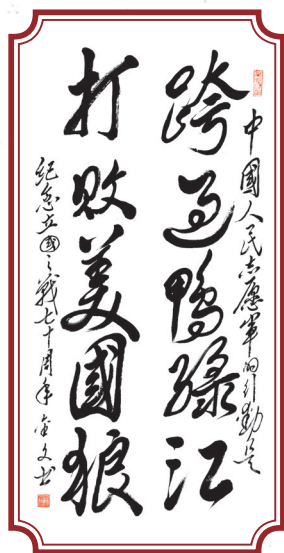 中國人民志愿軍的行動是
跨過鴨綠江
打敗美國狼
紀念立國之戰七十周年 金文书